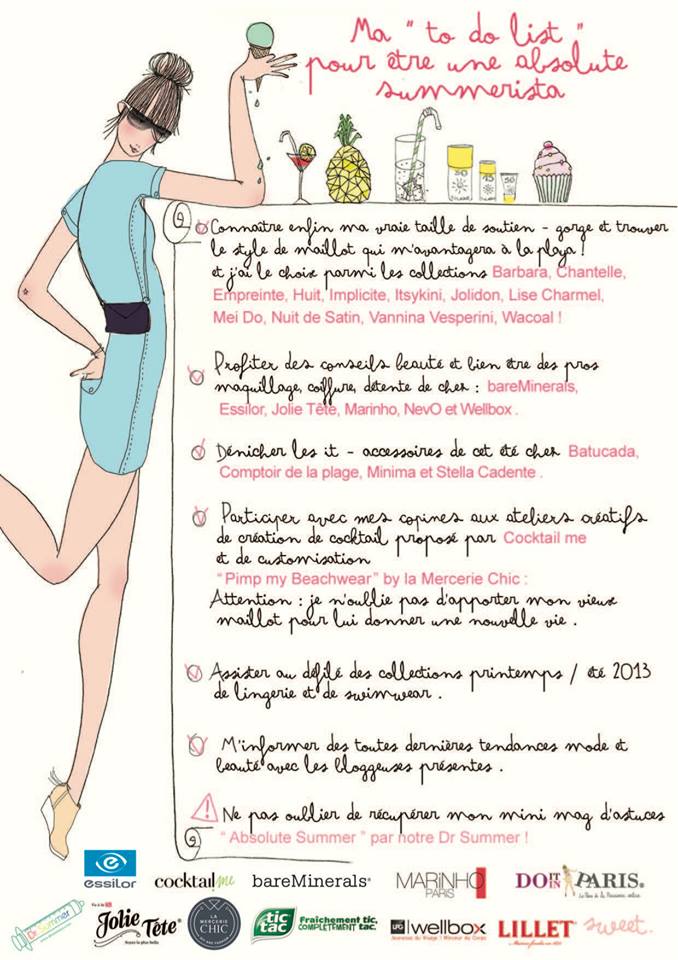 Ma " to do list "
pour être une absolute
summerista
50
15
30
Connaître enfin ma vraie taille de soutien - gorge et trouver
le style de maillot qui m'avantagera à la playa !
et j'ai le choix parmi les collections Barbara, Chantelle,
Empreinte, Huit, Implicite, Itsykini, Jolidon, Lise Charmel,
Mei Do, Nuit de Satin, Vannina Vesperini, Wacoal !
Profiter des conseils beauté et bien être des pros
maquillage, coiffure, détente de chez : bareMinerals,
Essilor, Jolie Tête, Marinho, NevO et Wellbox .
Dénicher les it - accessoires de cet été chez Batucada,
Comptoir de la plage, Minima et Stella Cadente .
Participer avec mes copines aux ateliers créatifs
de création de cocktail proposé par Cocktail me
et de customisation
“ Pimp my Beachwear ” by la Mercerie Chic :
Attention : je n'oublie pas d'apporter mon vieux
maillot pour lui donner une nouvelle vie .
Assister au défilé des collections printemps / été 2013
de lingerie et de swimwear .
M'informer des toutes dernières tendances mode et
beauté avec les bloggeuses présentes .
Ne pas oublier de récupérer mon mini mag d'astuces
“ Absolute Summer ” par notre Dr Summer !
essilor cocktail me bareMinerals® MARINHO PARIS DO IT IN PARIS.
Dr Summer Jolie Tête® LA MERCERIE CHIC tic tac Fraîchement tic, COMPLÈTEMENT tac. UG wellbox LILLET sweet.
Soyez la plus belle
Jeunesse du Visage | Minceur du Corps